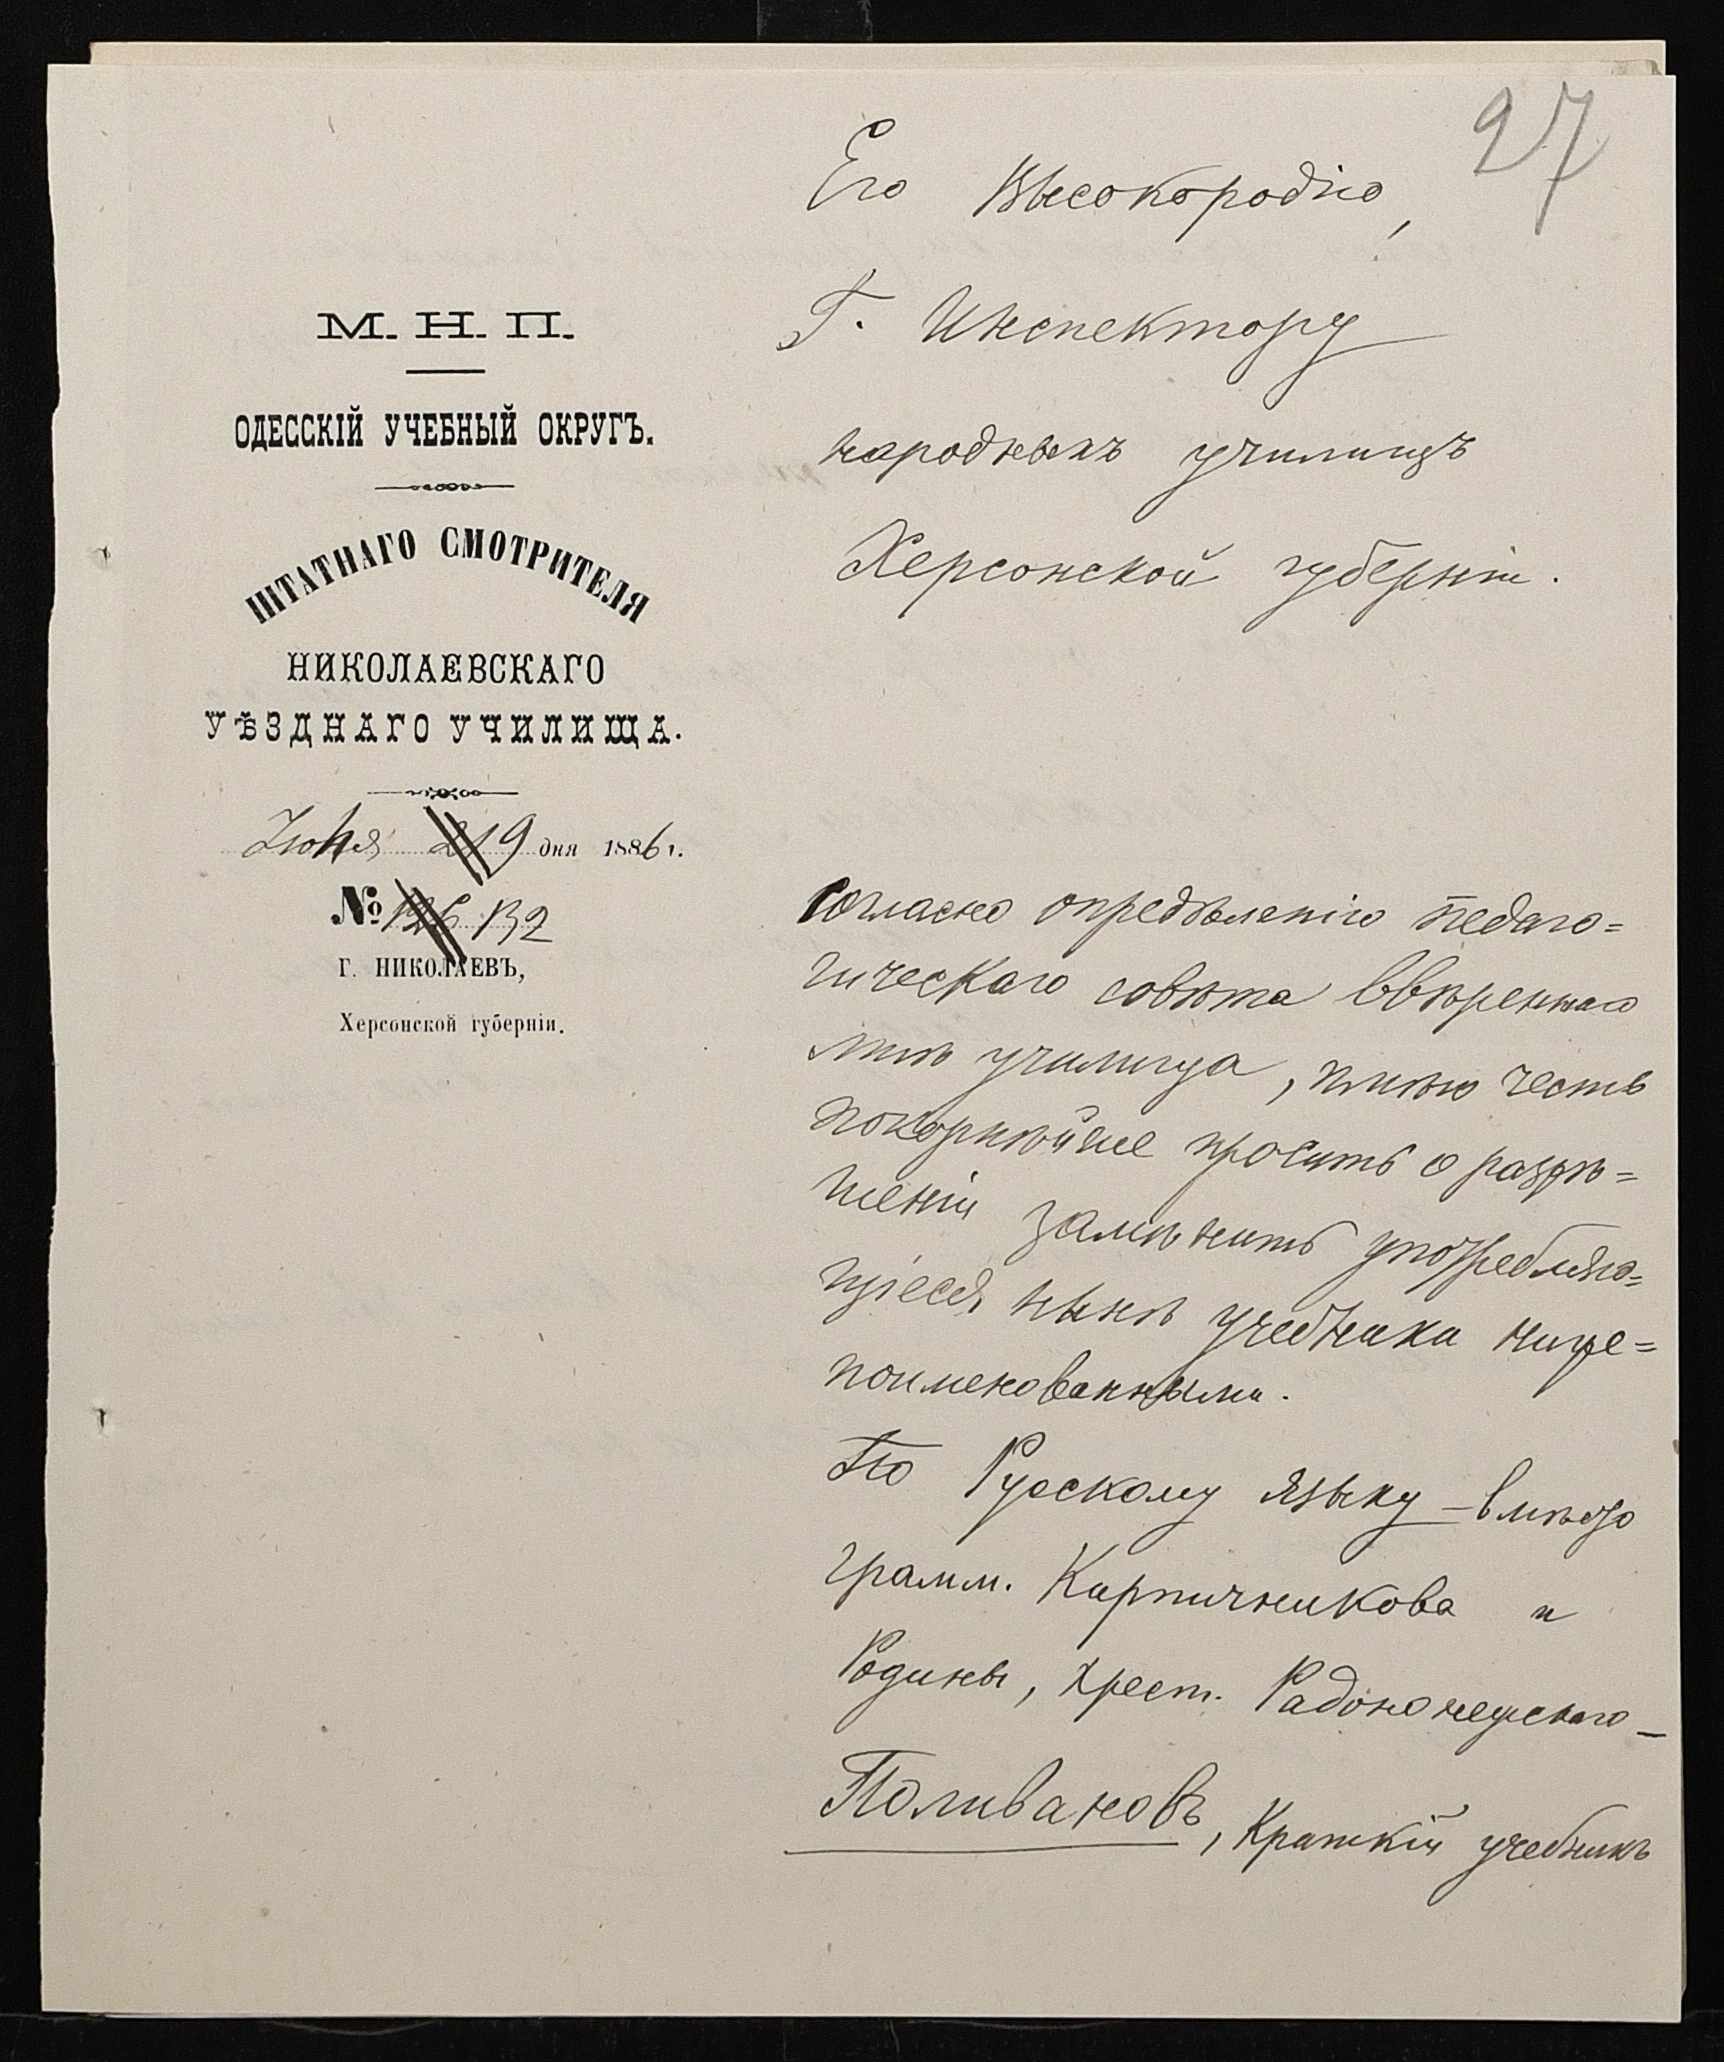 27
Его Высокородію,
Г. Инспектору
народныхъ училищъ
Херсонской губерніи.
М. Н. П.
ОДЕССКІЙ УЧЕБНЫЙ ОКРУГЪ.
ШТАТНАГО СМОТРИТЕЛЯ
НИКОЛАЕВСКАГО
УѢЗДНАГО УЧИЛИЩА.
Іюня 19 дня 1886 г.
№ 126 132
Г. НИКОЛАЕВЪ,
Херсонской губерніи.
Согласно опредѣленію педаго=
гическаго совѣта ввѣреннаго
мнѣ училища, имѣю честь
покорнѣйше просить о разрѣ=
шеніи замѣнить употребляю=
щіеся нынѣ учебники ниже=
поименованными.
По Русскому языку – вмѣсто
грамм. Кирпичникова и
Родины, хрест. Радонежскаго –
Поливановъ, Краткій учебникъ